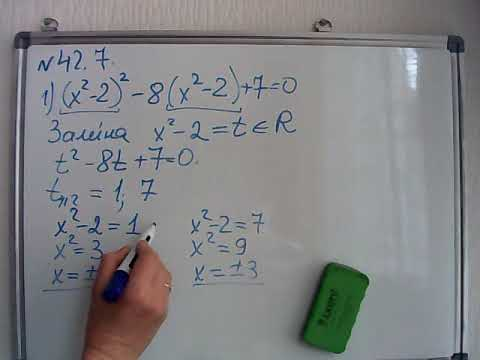 №42.7.
1) (x²-2)² - 8(x²-2)+7=0
Замена x²-2=t∈R
t²-8t+7=0.
t₁,₂ = 1; 7
x²-2=1 x²-2=7
x²=3 x²=9
x=± x=±3